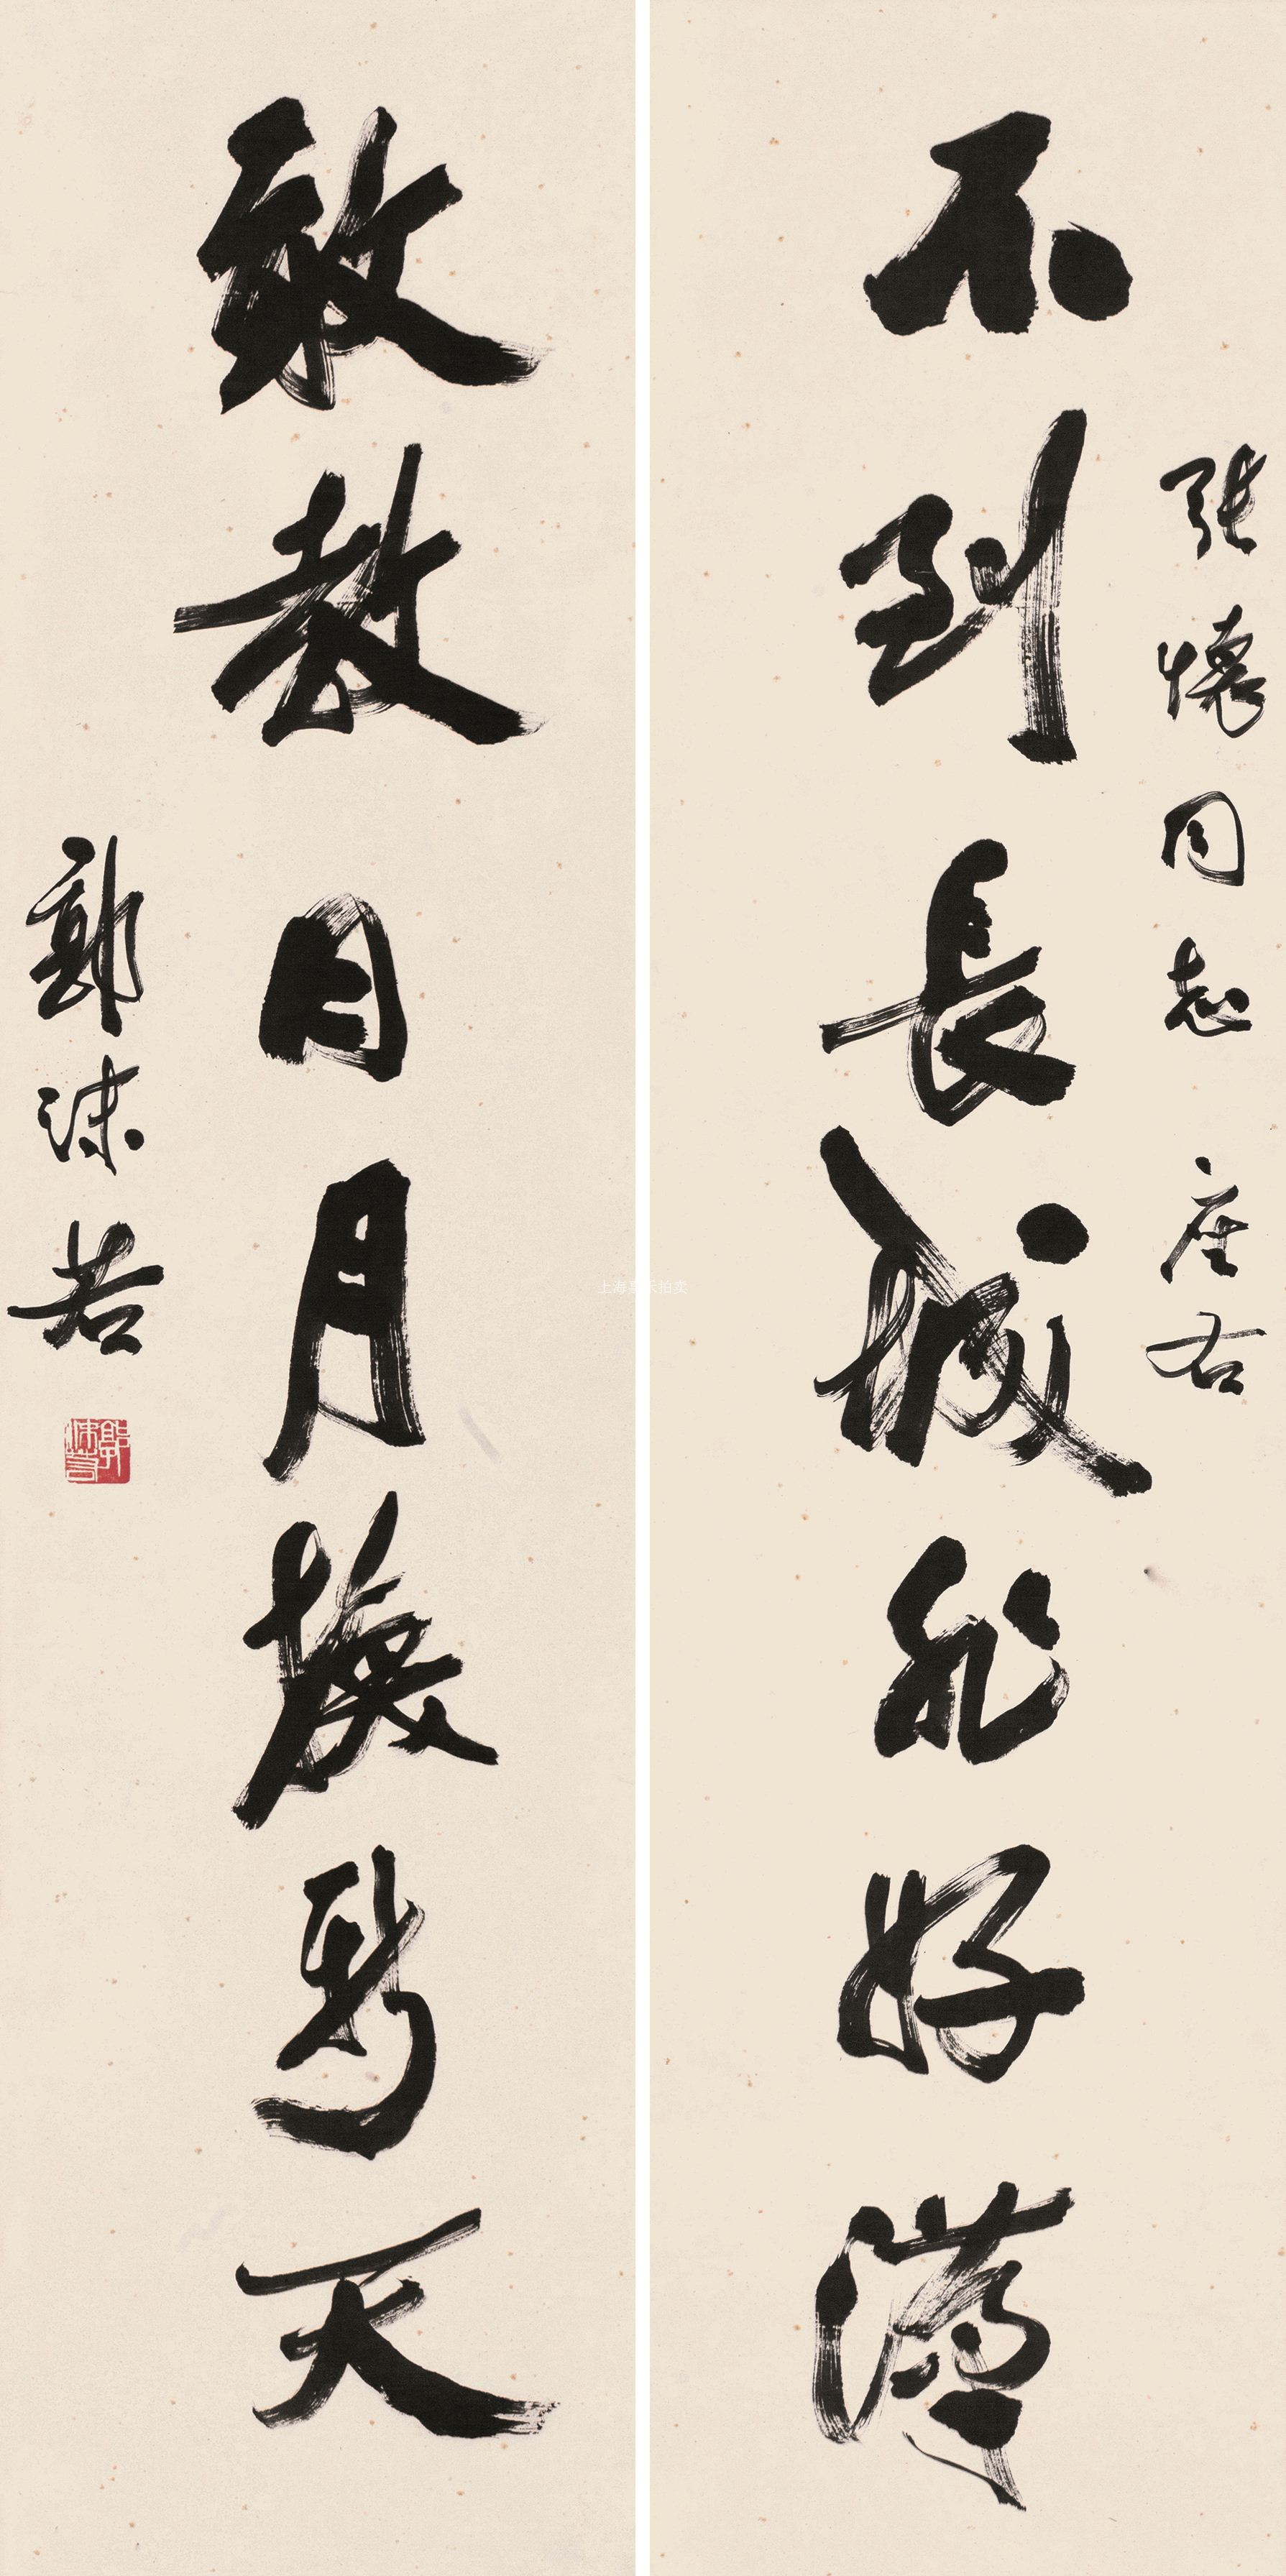 張懷同志 座右
不到長城非好漢
敢教日月換新天
郭沫若
郭沫若